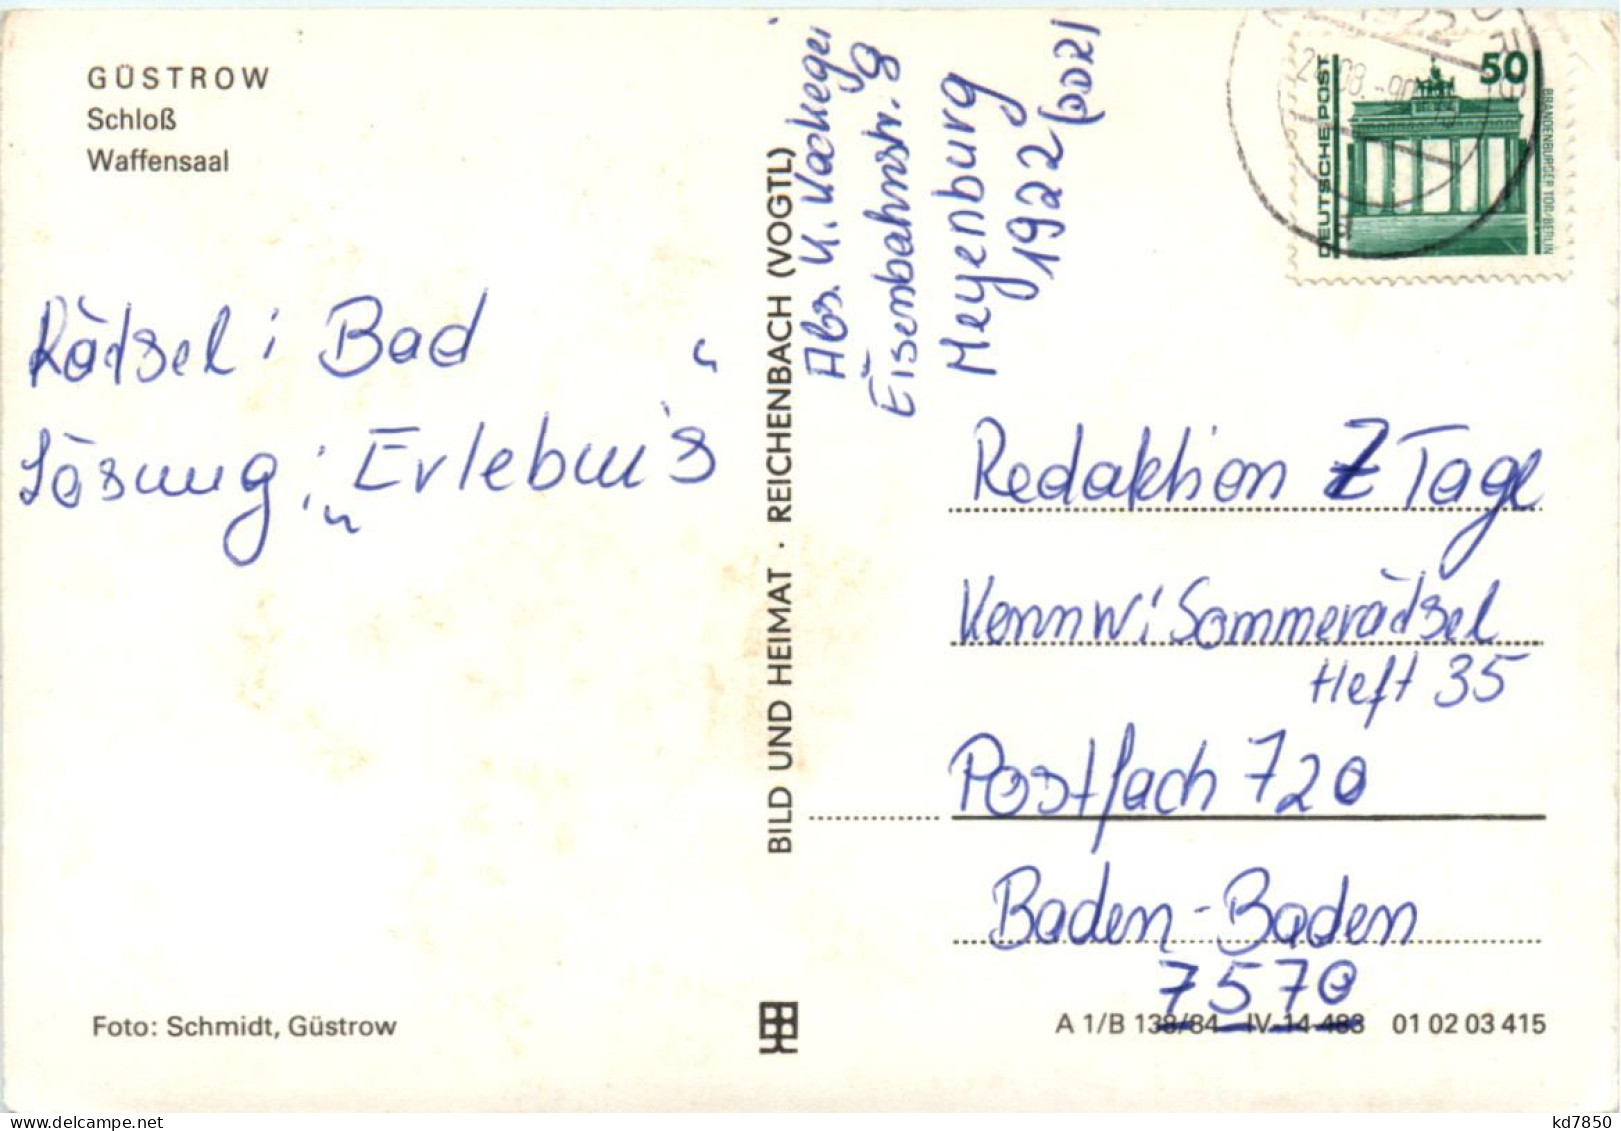 GÜSTROW
Schloß
Waffensaal
Rätsel: Bad
Lösung: „Erlebnis“
Foto: Schmidt, Güstrow
BILD UND HEIMAT · REICHENBACH (VOGTL)
Abs. K.
Eisenbahnstr. 8
Meyenburg
1922 (DDR)
DEUTSCHE POST
50
BRANDENBURGER TOR/BERLIN
Redaktion 7 Tage
Kennw: Sommerrätsel
Heft 35
Postfach 720
Baden-Baden
7570
A 1/B 138/84 IV-14-483 01 02 03 415
kd7850